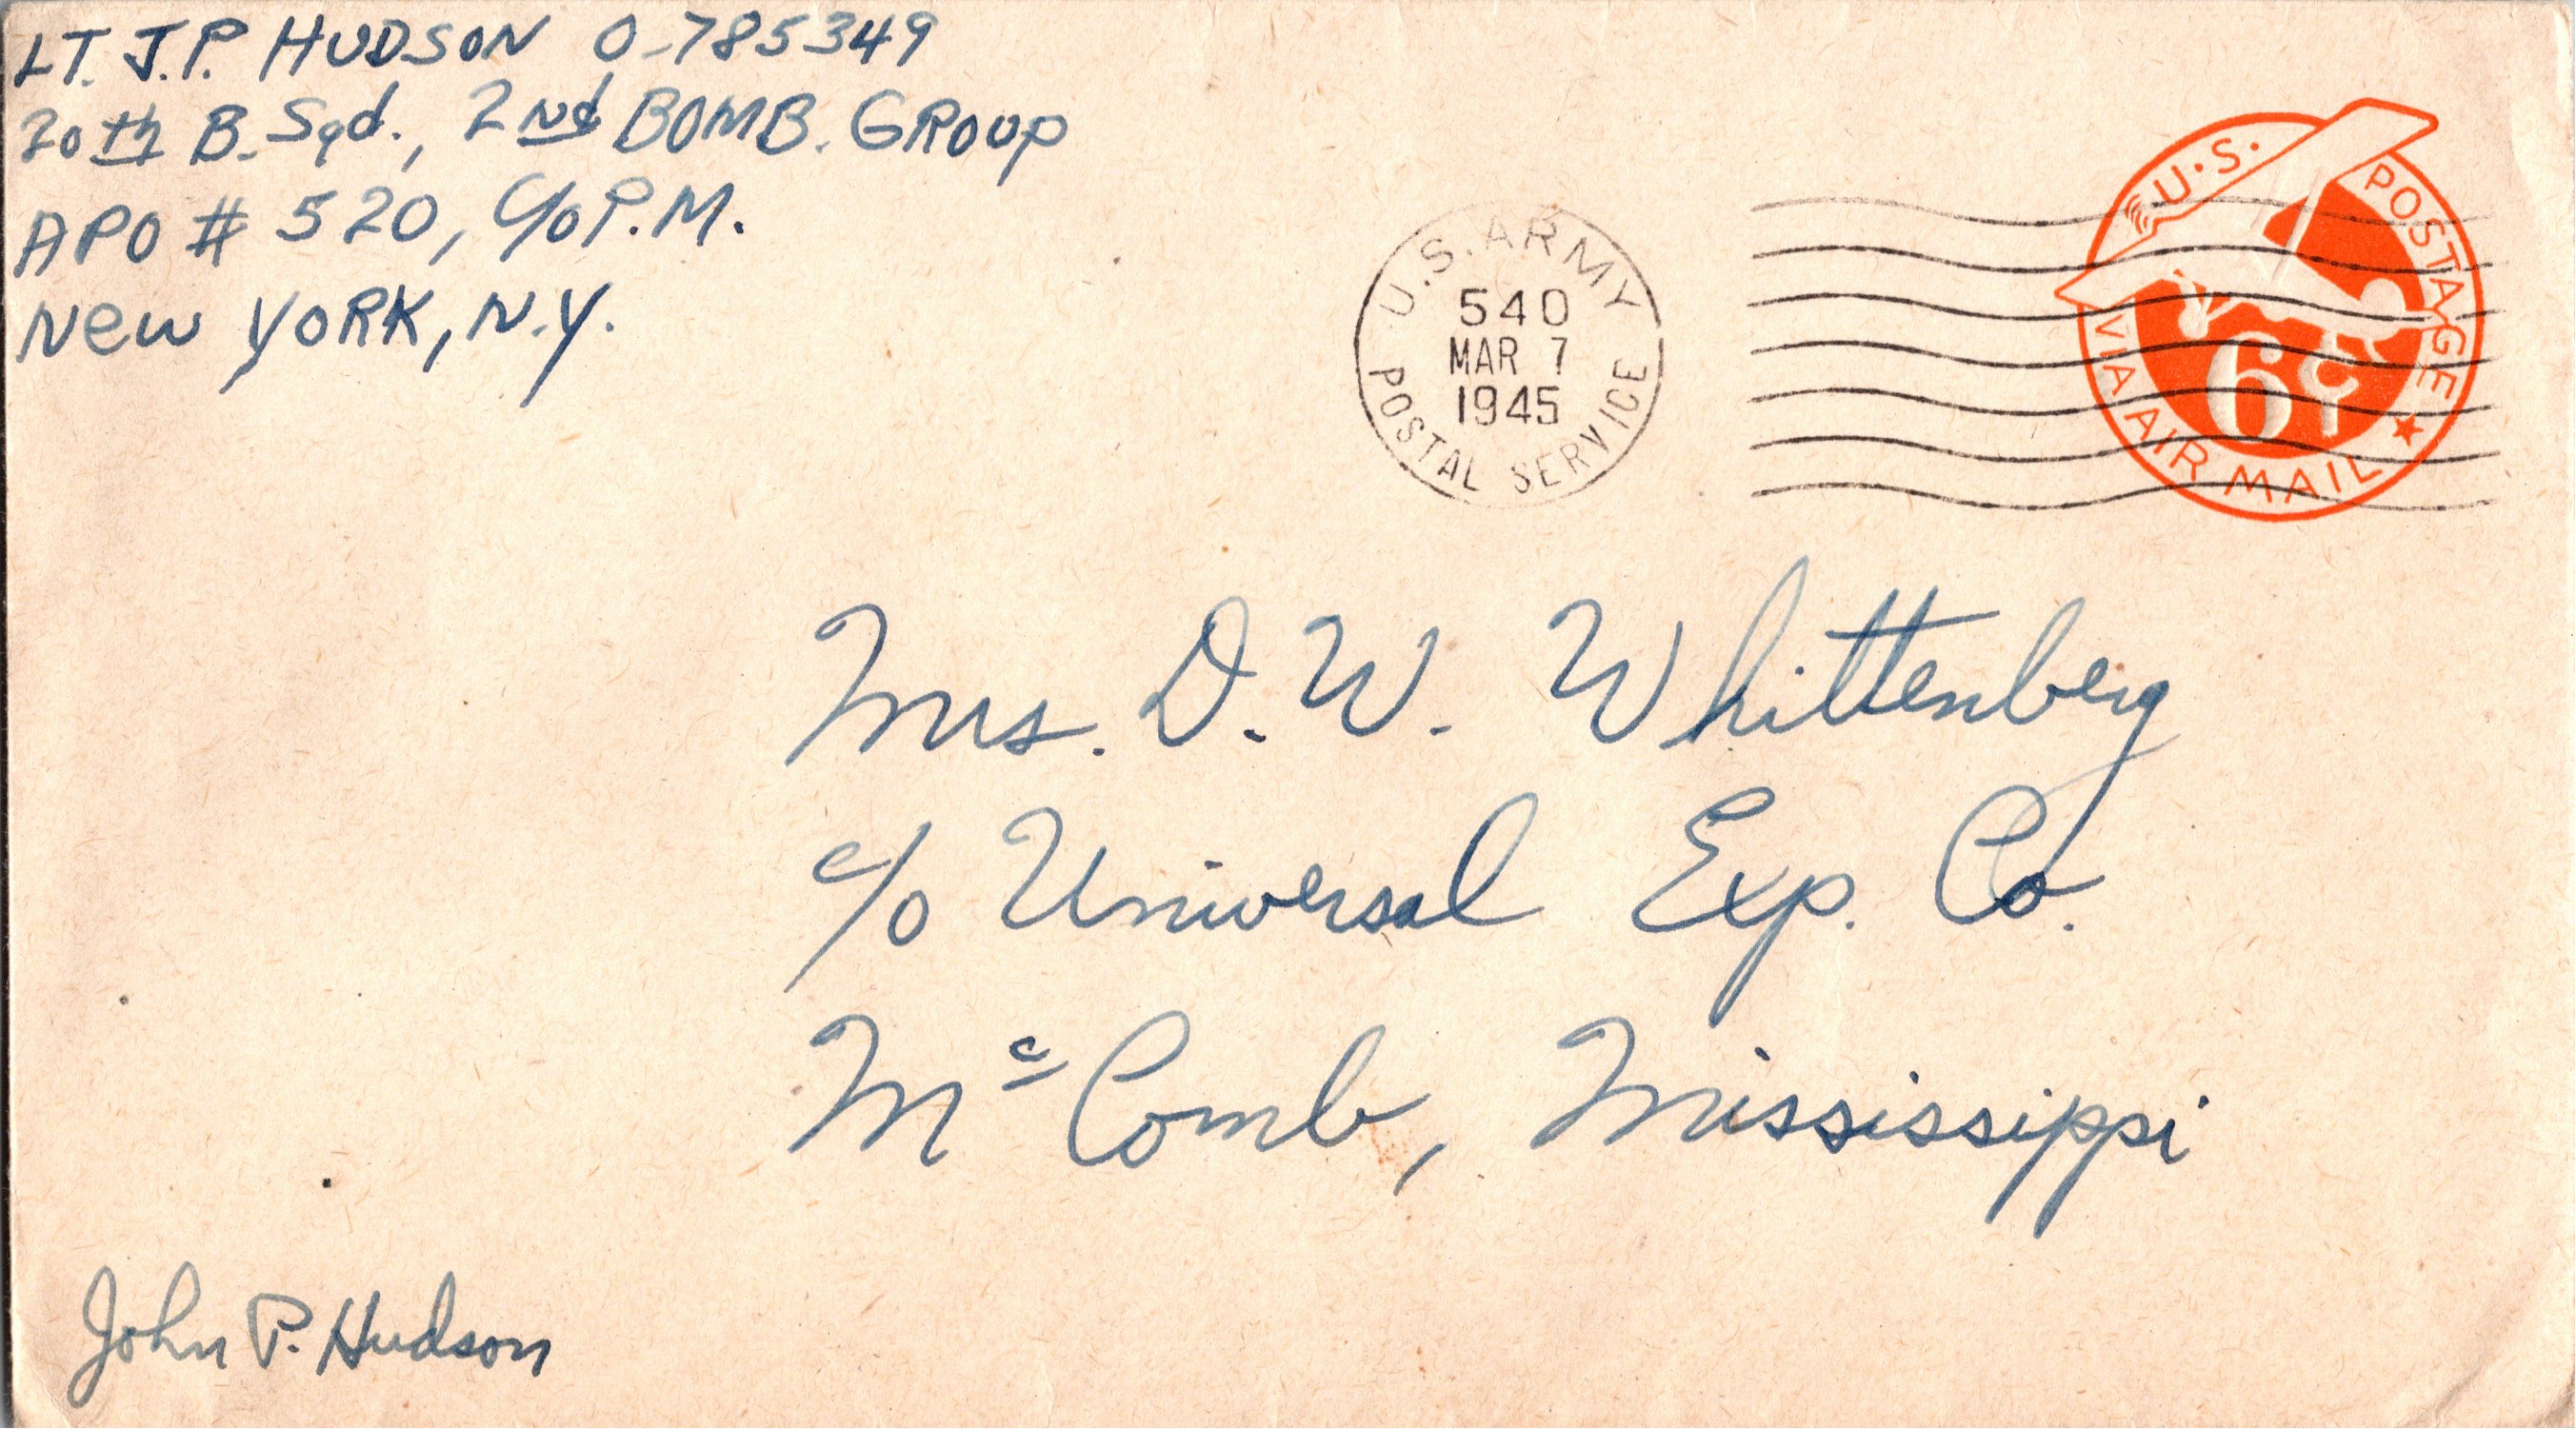 LT. J.P. HUDSON O-785349
20th B. Sqd., 2nd BOMB. GROUP
APO # 520, c/o P.M.
New YORK, N.Y.
U.S. ARMY
540
MAR 7
1945
POSTAL SERVICE
U.S. POSTAGE
6¢
VIA AIR MAIL
Mrs. D. W. Whittenberg
c/o Universal Exp. Co.
McComb, Mississippi
John P. Hudson